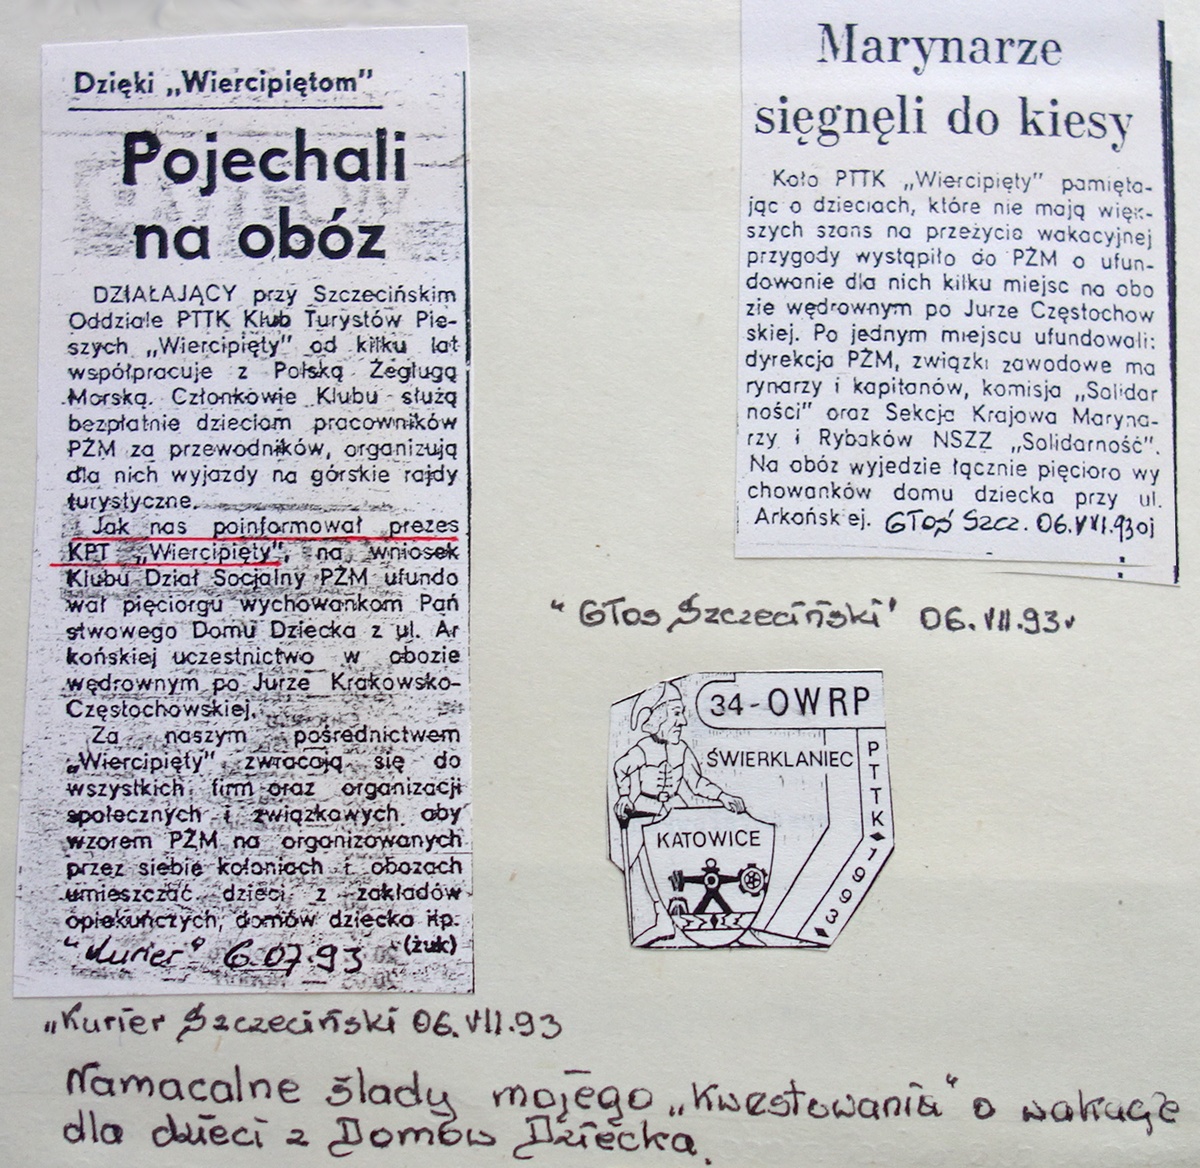 Dzięki „Wiercipiętom”
Pojechali
na obóz
DZIAŁAJĄCY przy Szczecińskim
Oddziale PTTK Klub Turystów Pie-
szych „Wiercipięty” od kilku lat
współpracuje z Polską Żeglugą
Morską. Członkowie Klubu służą
bezpłatnie dzieciom pracowników
PŻM za przewodników, organizują
dla nich wyjazdy na górskie rajdy
turystyczne.
Jak nas poinformował prezes
KPT „Wiercipięty”, na wniosek
Klubu Dział Socjalny PŻM ufundo
wał pięciorgu wychowankom Pań
stwowego Domu Dziecka z ul. Ar
końskiej uczestnictwo w obozie
wędrownym po Jurze Krakowsko-
Częstochowskiej.
Za naszym pośrednictwem
„Wiercipięty” zwracają się do
wszystkich firm oraz organizacji
społecznych i związkowych aby
wzorem PŻM na organizowanych
przez siebie koloniach i obozach
umieszczać dzieci z zakładów
opiekuńczych, domów dziecka itp.
(żuk)
"Kurier" 6.07.93
„Kurier Szczeciński 06.VII.93
Marynarze
sięgnęli do kiesy
Koło PTTK „Wiercipięty” pamięta-
jąc o dzieciach, które nie mają więk-
szych szans na przeżycie wakacyjnej
przygody wystąpiło do PŻM o ufun-
dowanie dla nich kilku miejsc na obo
zie wędrownym po Jurze Częstochow
skiej. Po jednym miejscu ufundowali:
dyrekcja PŻM, związki zawodowe ma
rynarzy i kapitanów, komisja „Solidar
ności” oraz Sekcja Krajowa Maryna-
rzy i Rybaków NSZZ „Solidarność”.
Na obóz wyjedzie łącznie pięcioro wy
chowanków domu dziecka przy ul.
Arkońskiej. Głoś Szcz. 06.VII.93 oj
"Głos Szczeciński" 06.VII.93r
34-OWRP
ŚWIERKLANIEC
KATOWICE
PTTK 1993
Namacalne ślady mojego „Kwestowania" o wakacje
dla dzieci z Domów Dziecka.